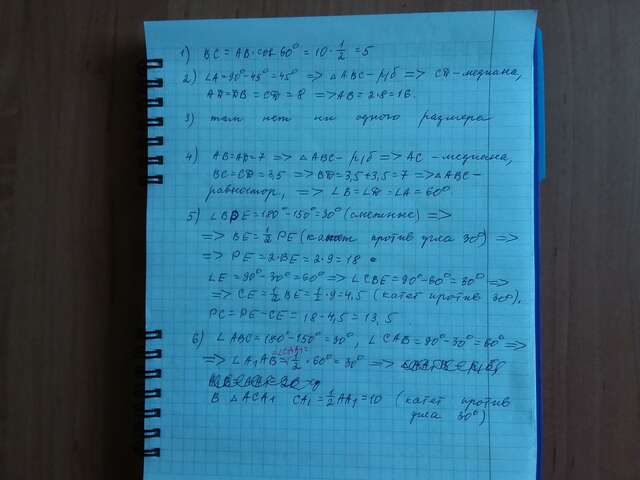 1) BC = AB · cos 60° = 10 · 1/2 = 5
2) ∠A = 90° - 45° = 45° => △ABC - р/б => CD - медиана,
AD = DB = CD = 8 => AB = 2·8 = 16.
3) там нет ни одного размера
4) AB = AD = 7 => △ABC - р/б => AC - медиана,
BC = CD = 3,5 => BD = 3,5 + 3,5 = 7 => △ABC -
равностор, => ∠B = ∠D = ∠A = 60°
5) ∠BPE = 180° - 150° = 30° (смежные) =>
=> BE = 1/2 PE (катет против угла 30°) =>
=> PE = 2·BE = 2·9 = 18
∠E = 90° - 30° = 60° => ∠CBE = 90° - 60° = 30° =>
=> CE = 1/2 BE = 1/2 · 9 = 4,5 (катет против 30°).
PC = PE - CE = 18 - 4,5 = 13,5
6) ∠ABC = 180° - 150° = 30°, ∠CAB = 90° - 30° = 60° =>
=> ∠A₁AB = ∠CAA₁ = 1/2 · 60° = 30° =>
В △ACA₁ CA₁ = 1/2 AA₁ = 10 (катет против
угла 30°)